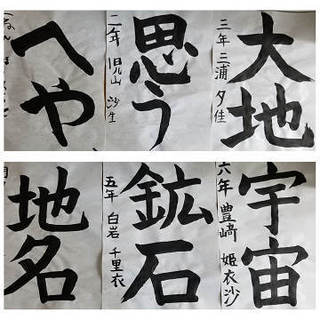 大地
三年 三浦 夕佳
思う
二年 児山 沙生
へや
宇宙
六年 豊﨑 姫衣沙
鉱石
五年 白岩 千里衣
地名